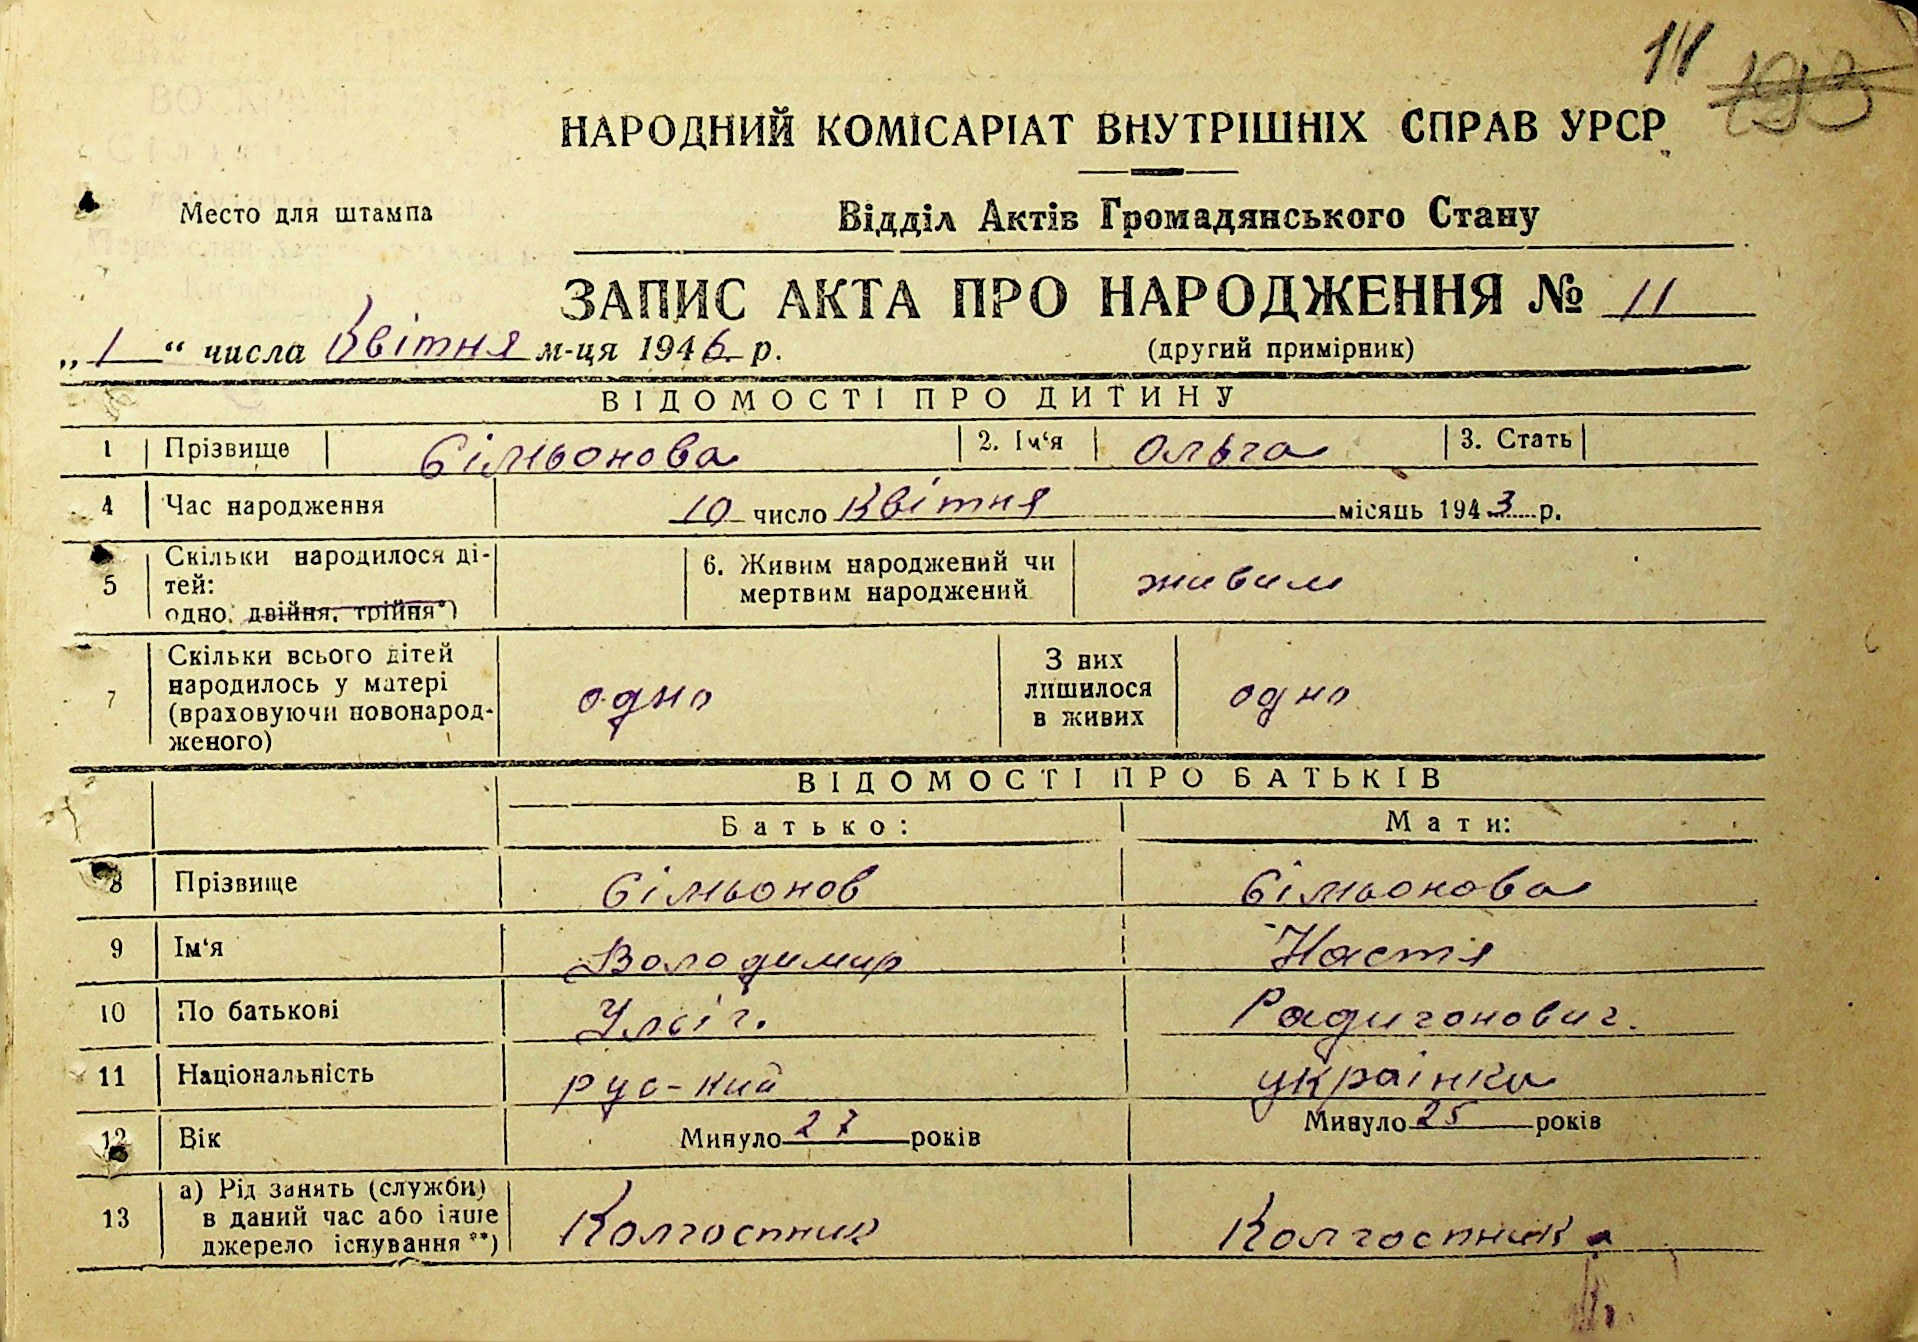 11
НАРОДНИЙ КОМІСАРІАТ ВНУТРІШНІХ СПРАВ УРСР
Место для штампа
Відділ Актів Громадянського Стану
ЗАПИС АКТА ПРО НАРОДЖЕННЯ № 11
„1“ числа Квітня м-ця 1946 р.
(другий примірник)
ВІДОМОСТІ ПРО ДИТИНУ
1 Прізвище Сімьонова 2. Ім‘я Ольга 3. Стать
4 Час народження 10 число Квітня місяць 1943 р.
5 Скільки народилося ді-
тей:
одно, двійня, трійня*)
6. Живим народжений чи
мертвим народжений
живим
7 Скільки всього дітей
народилось у матері
(враховуючи новонарод-
женого)
одно
З них
лишилося
в живих
одно
ВІДОМОСТІ ПРО БАТЬКІВ
Батько: Мати:
8 Прізвище Сімьонов Сімьонова
9 Ім‘я Володимир Настя
10 По батькові Ільїч. Радигонович.
11 Національність рус-кий українка
12 Вік Минуло 27 років Минуло 25 років
13 а) Рід занять (служби)
в даний час або інше
джерело існування **)
Колгоспник Колгоспник